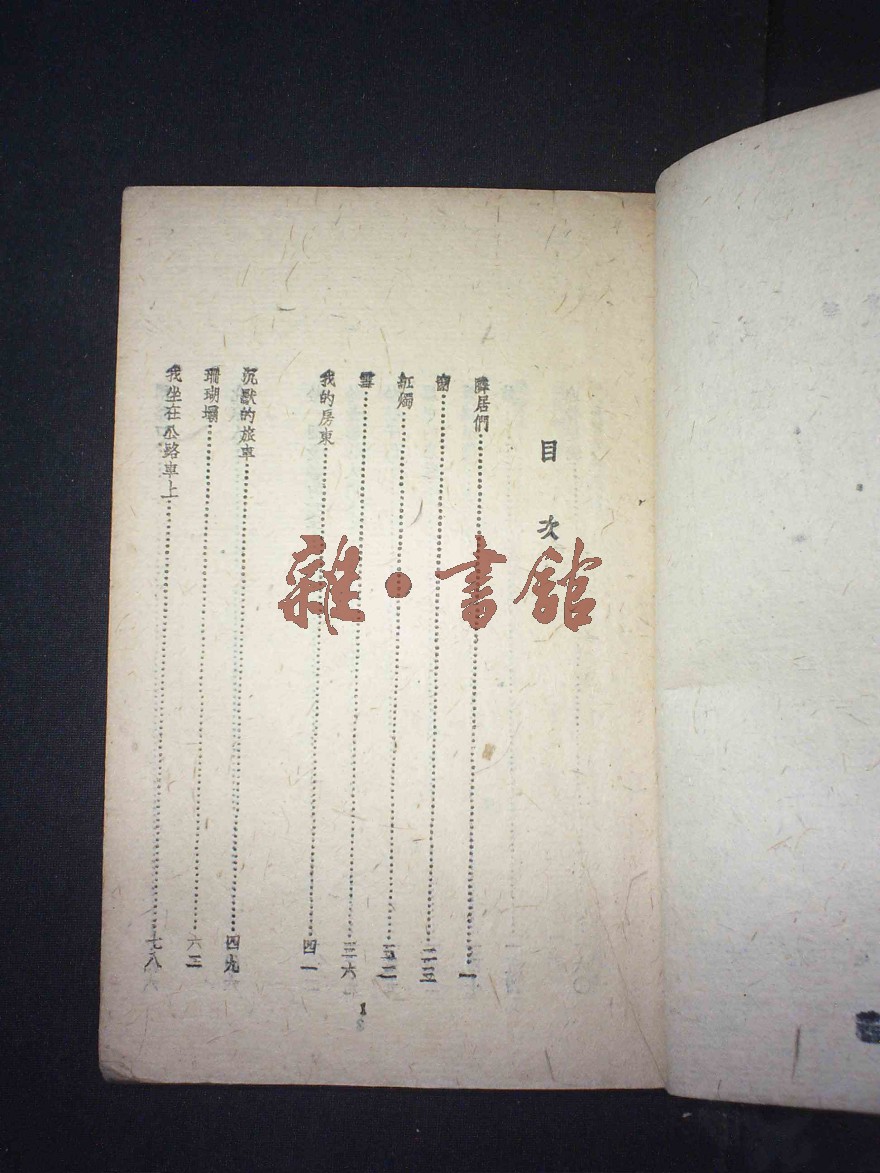 目次
鄰居們……一
窗……二三
紅燭……三二
雪……三六
我的房東……四一
沉默的旅車……四九
珊瑚壩……六三
我坐在公路車上……七八
1
雜·書館